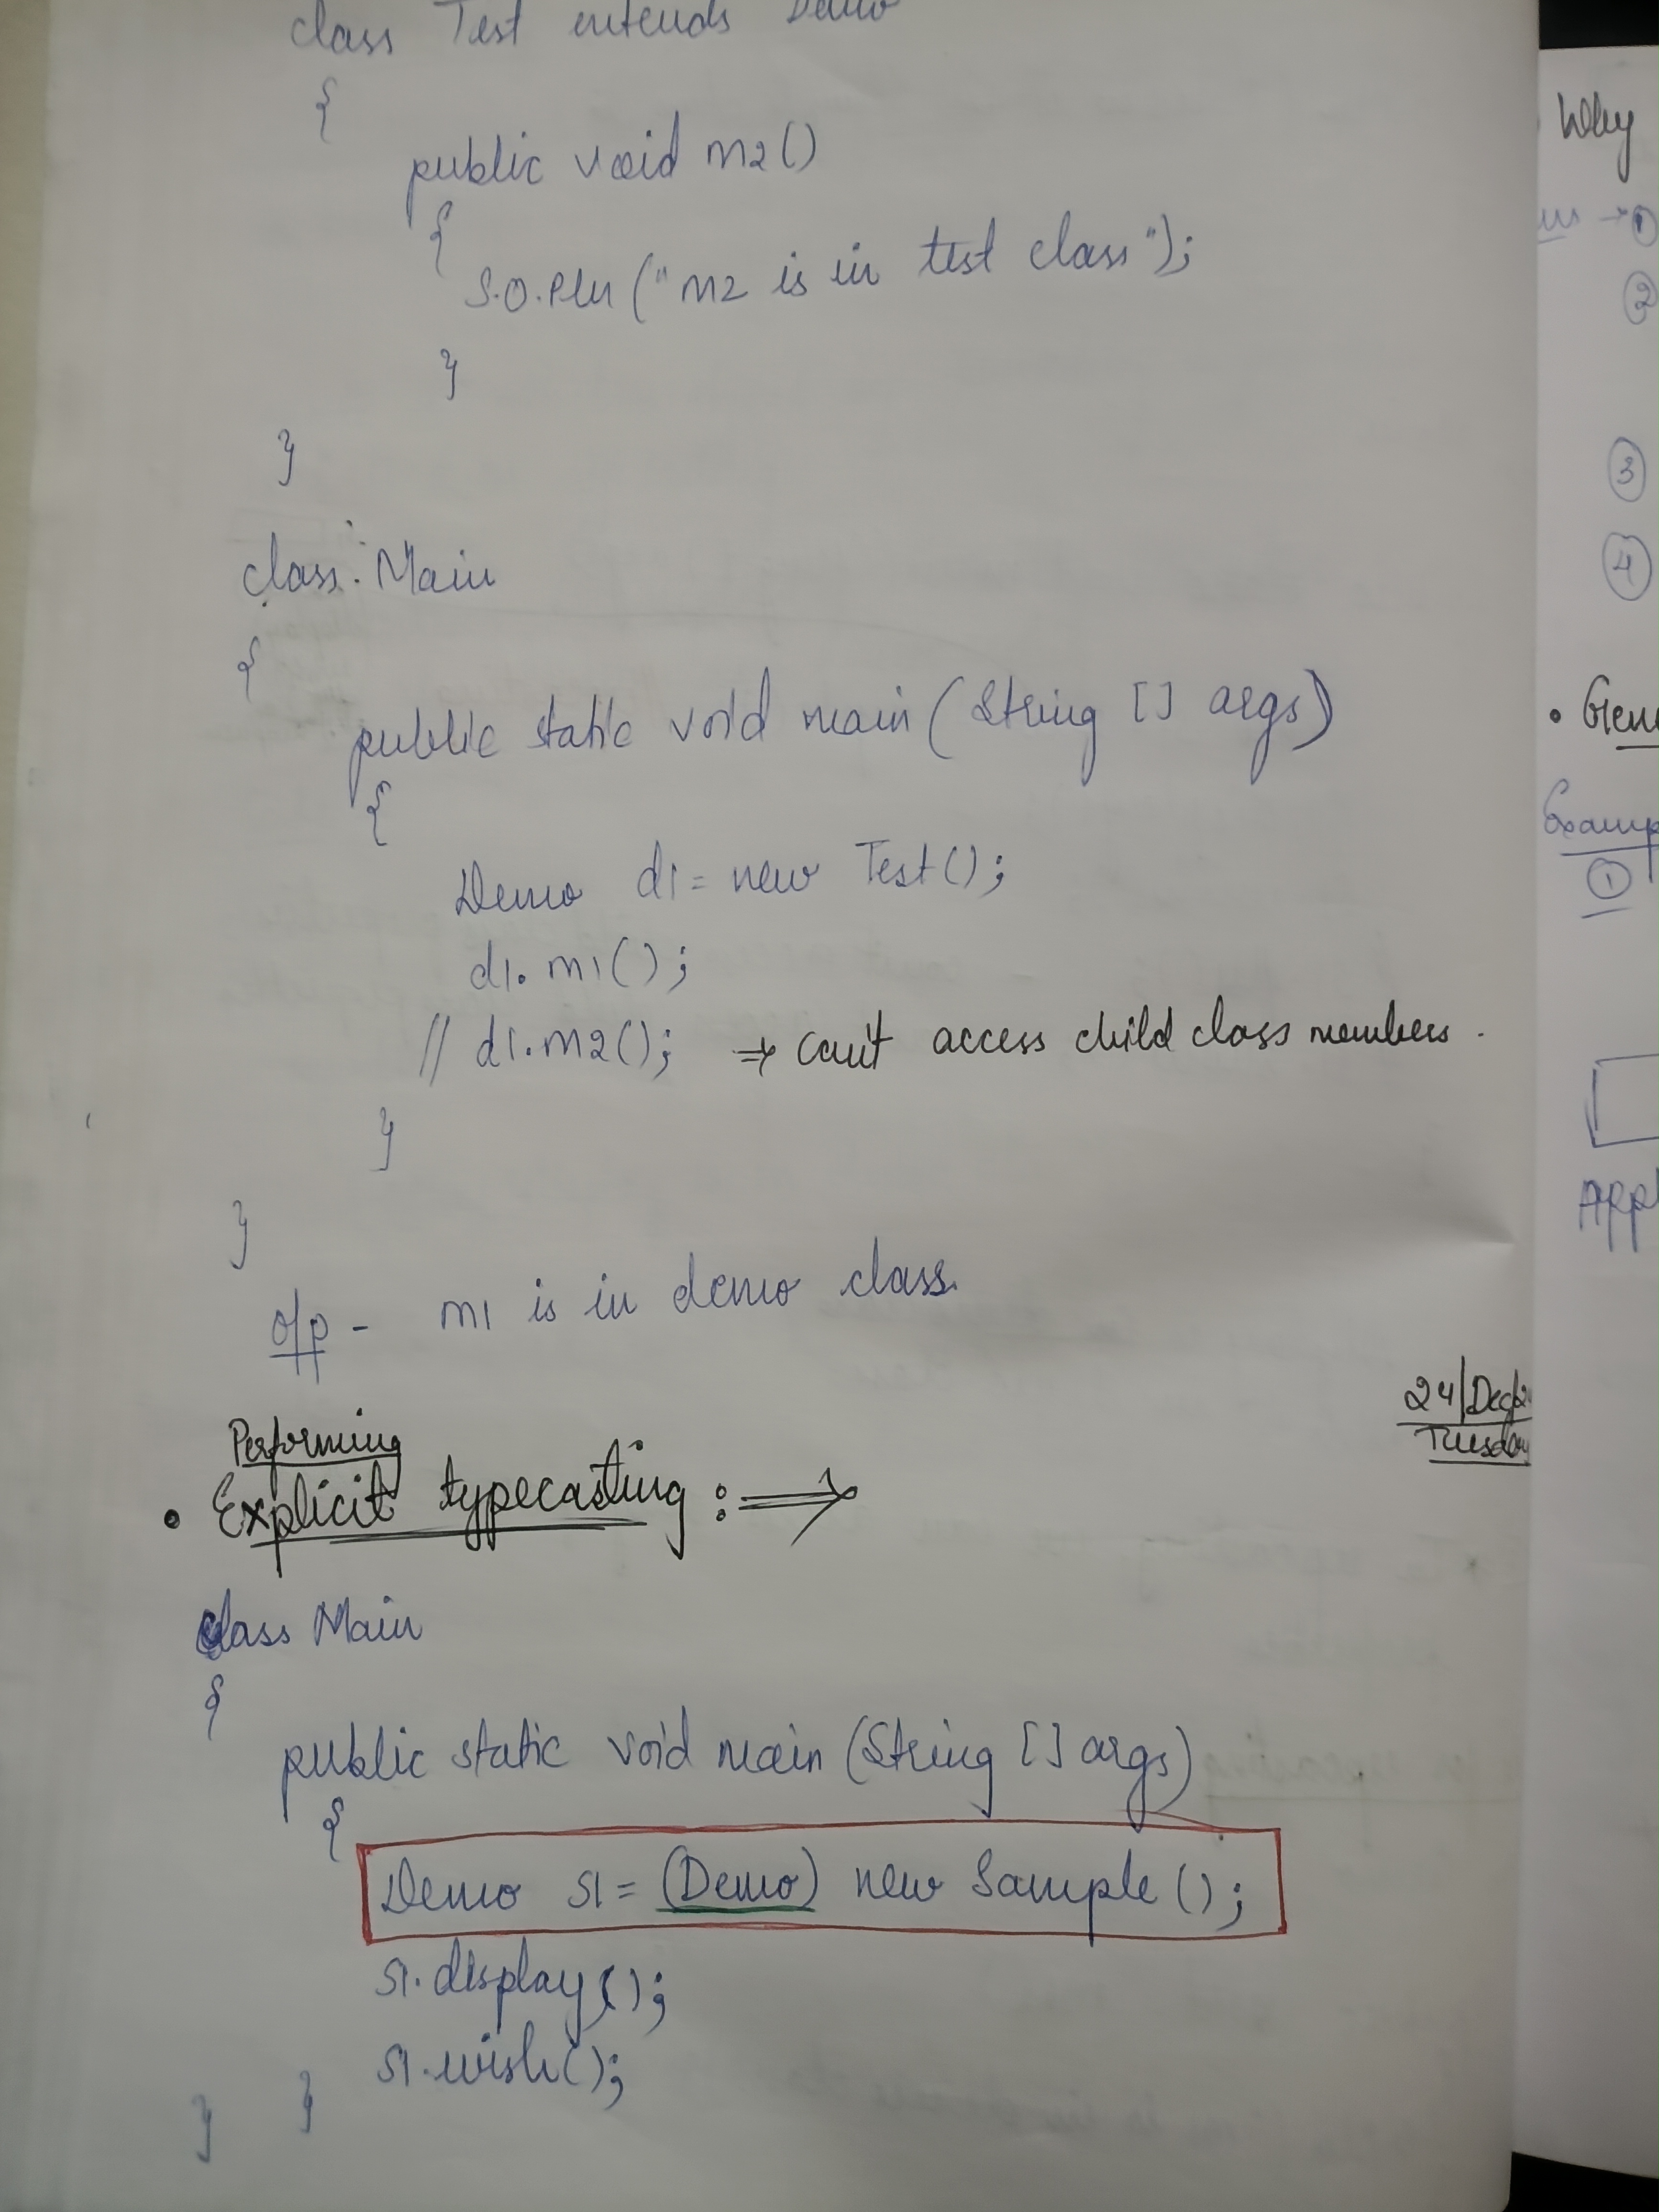 class Test extends Demo
{
public void m2()
{
S.O.Pln ("m2 is in test class");
}
}
class Main
{
public static void main (String [] args)
{
Demo d1 = new Test();
d1. m1();
// d1.m2(); ⇒ can't access child class members.
}
}
o/p - m1 is in demo class.
24/Dec/2
Tuesday
Performing
• Explicit typecasting : ⇒
class Main
{
public static void main (String [] args)
{
Demo s1 = (Demo) new Sample ();
s1.display();
s1.wish();
} }
Why
→ ①
②
③
④
• Gen
Examp
①
App